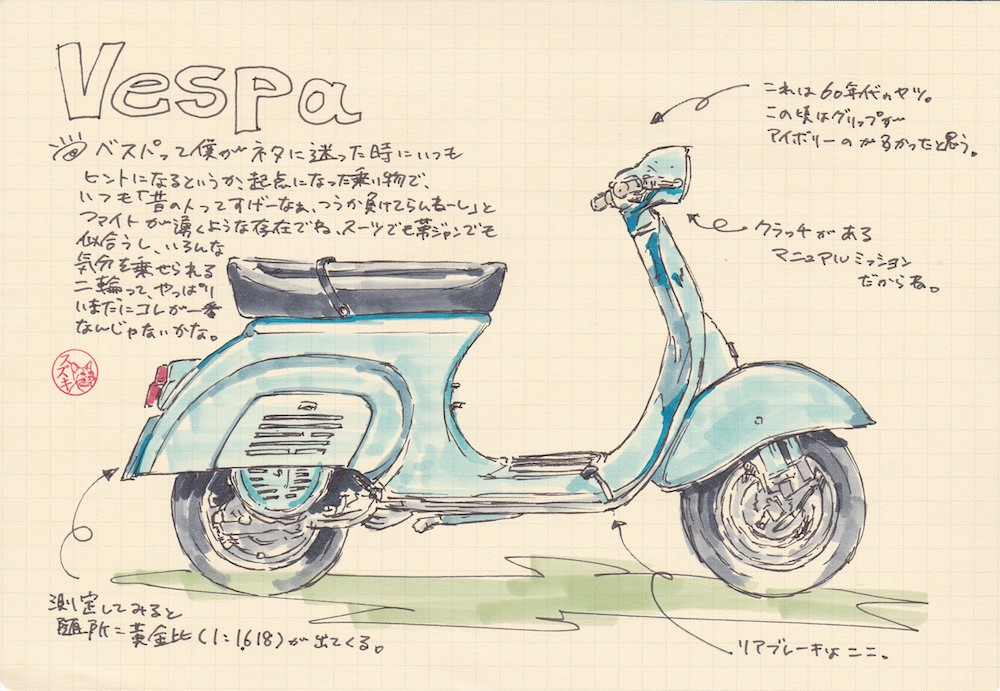 Vespa
ベスパって僕がネタに迷った時にいつも
ヒントになるというか、起点になった乗り物で、
いつも「昔の人ってすげーなぁ、つうか負けてらんねーし」と
ファイトが湧くような存在でね、スーツでも革ジャンでも
似合うし、いろんな
気分を乗せられる
二輪って、やっぱり
いまだにコレが一番
なんじゃないかな。
スズキ
これは60年代のヤツ。
この頃はグリップが
アイボリーのが多かったと思う。
クラッチがある
マニュアルミッション
だからね。
測定してみると
随所に黄金比(1:1.618)が出てくる。
リアブレーキはココ。